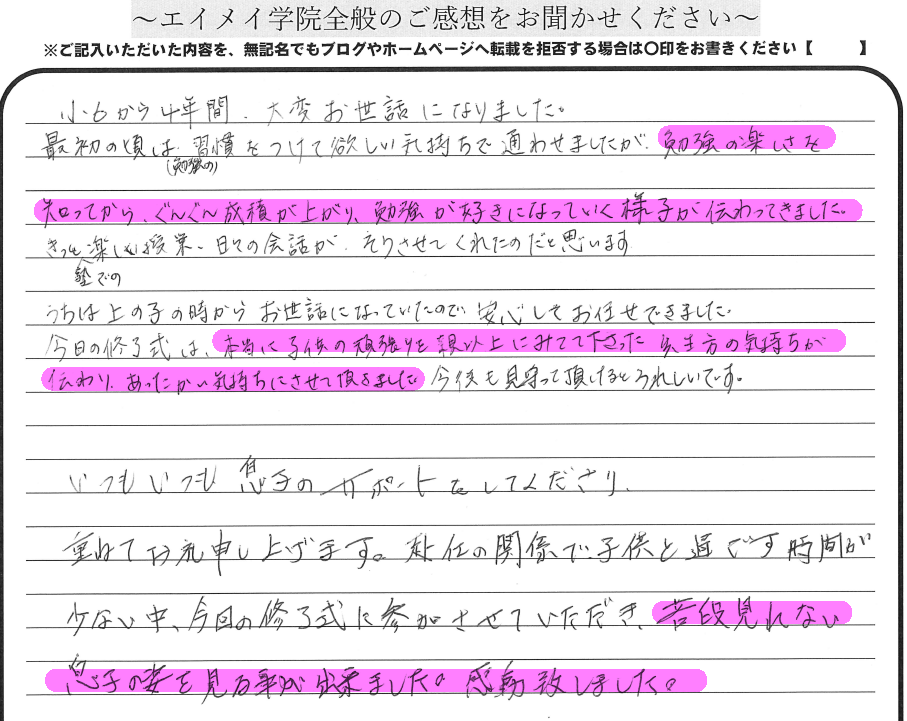 ～エイメイ学院全般のご感想をお聞かせください～
※ご記入いただいた内容を、無記名でもブログやホームページへ転載を拒否する場合は〇印をお書きください【　　】
小6から4年間、大変お世話になりました。
最初の頃は、習慣をつけて欲しい気持ちで通わせましたが、勉強の楽しさを
(勉強の)
知ってから、ぐんぐん成績が上がり、勉強が好きになっていく様子が伝わってきました。
きっと楽しい授業、日々の会話が、そうさせてくれたのだと思います
塾での
うちは上の子の時からお世話になっていたので、安心してお任せできました。
今日の修了式は、本当に子供の頑張りを親以上にみてて下さった先生方の気持ちが
伝わり、あったかい気持ちにさせて頂きました。今後も見守って頂けるとうれしいです。
いつもいつも息子のサポートをしてくださり、
重ねてお礼申し上げます。赴任の関係で子供と過ごす時間が
少ない中、今回の修了式に参加させていただき、普段見れない
息子の姿を見る事が出来ました。感動致しました。